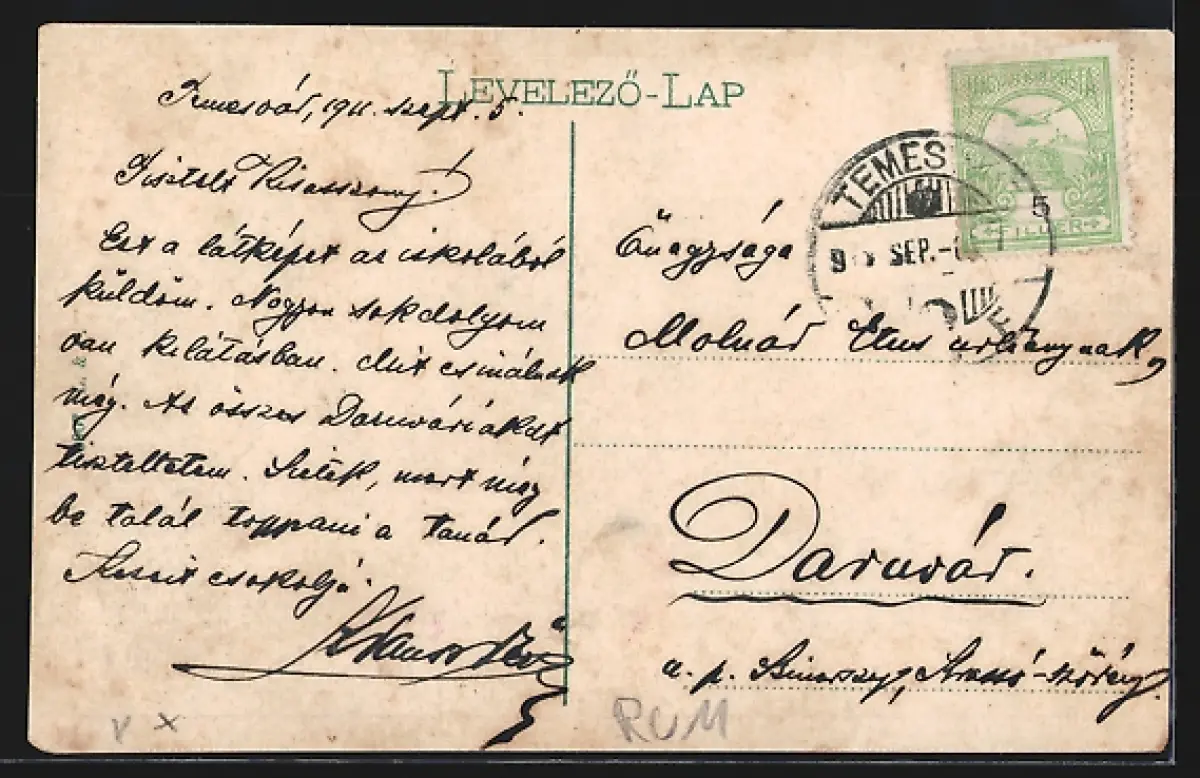 LEVELEZŐ-LAP
Temesvár, 1911. szept. 5.
Tisztelt Kisasszony!
Ezt a látképet az iskolából
küldöm. Nagyon sok dolgom
van kilátásban. Mit csinálnak
még. Az összes Daruváriakat
tiszteltetem. Sietek, mert még
be talál toppani a tanár.
Kezeit csokolja
MAGYAR KIR. POSTA
5
FILLÉR
TEMES
SEP.
Őnagysága
Molnár Etus urleánynak,
Daruvár.
u. p. Krassó-Szörény
RUM
V X